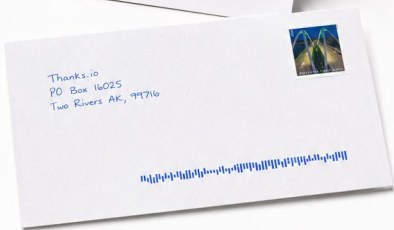 Thanks.io
PO Box 16025
Two Rivers AK, 99716